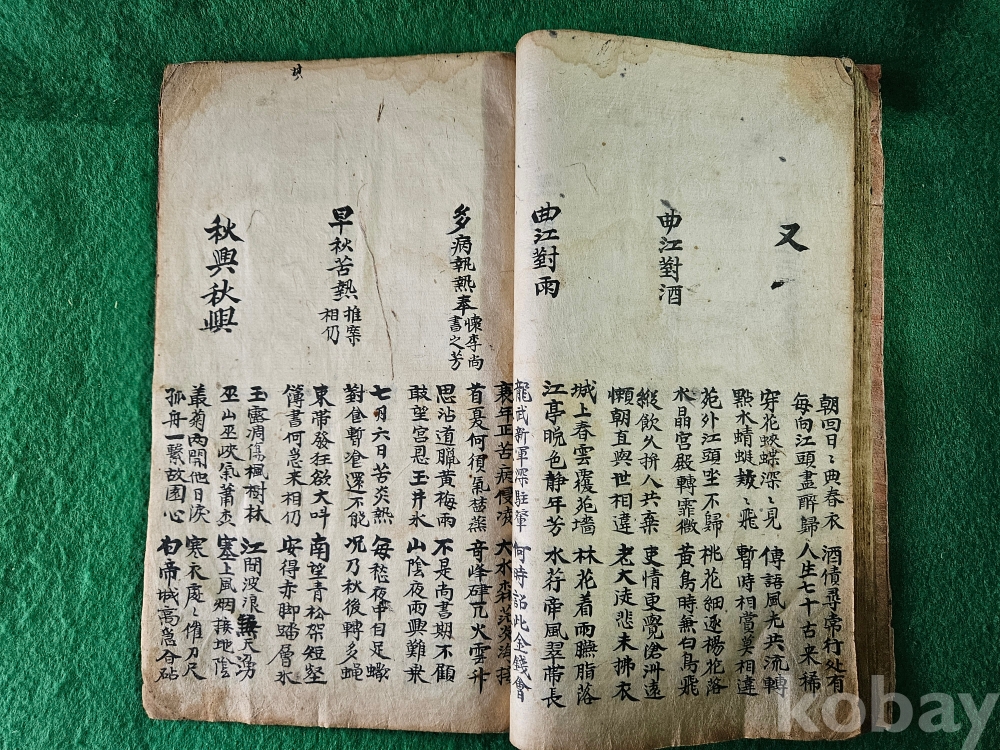 又一
朝回日〻典春衣
每向江頭盡醉歸
酒債尋常行处有
人生七十古来稀
穿花蛺蝶深〻見
點水蜻蜓欵〻飛
傳語風光共流轉
暫時相賞莫相違
曲江對酒
苑外江頭坐不歸
水晶宮殿轉霏微
桃花細逐楊花落
黃鳥時兼白鳥飛
縱飲久拚人共棄
懶朝直與世相違
吏情更覺滄洲遠
老大徒悲未拂衣
曲江對雨
城上春雲覆苑墻
江亭晚色静年芳
林花着雨臙脂落
水荇帶風翠帶長
龍武新軍深駐輦
何時詔此金錢會
多病執熱奉
懷李尚
書之芳
衰年正苦病侵凌
首夏何須氣蒸
大水淼茫炎海接
奇峰硉兀火雲升
思沾道暍黃梅雨
敢望宮恩玉井氷
不是尚書期不顧
山陰夜雨興難乗
早秋苦熱
推案
相仍
七月六日苦炎熱
對食暫湌還不能
每愁夜中自足蝎
况乃秋後轉多蝇
束帶發狂欲大叫
簿書何急来相仍
南望青松架短壑
安得赤脚踏層氷
秋興秋興
玉露凋傷楓樹林
巫山巫峽氣蕭
江間波浪無天湧
塞上風烟接地陰
叢菊両開他日淚
孤舟一繫故園心
寒衣處〻催刀尺
白帝城高急暮砧
kobay